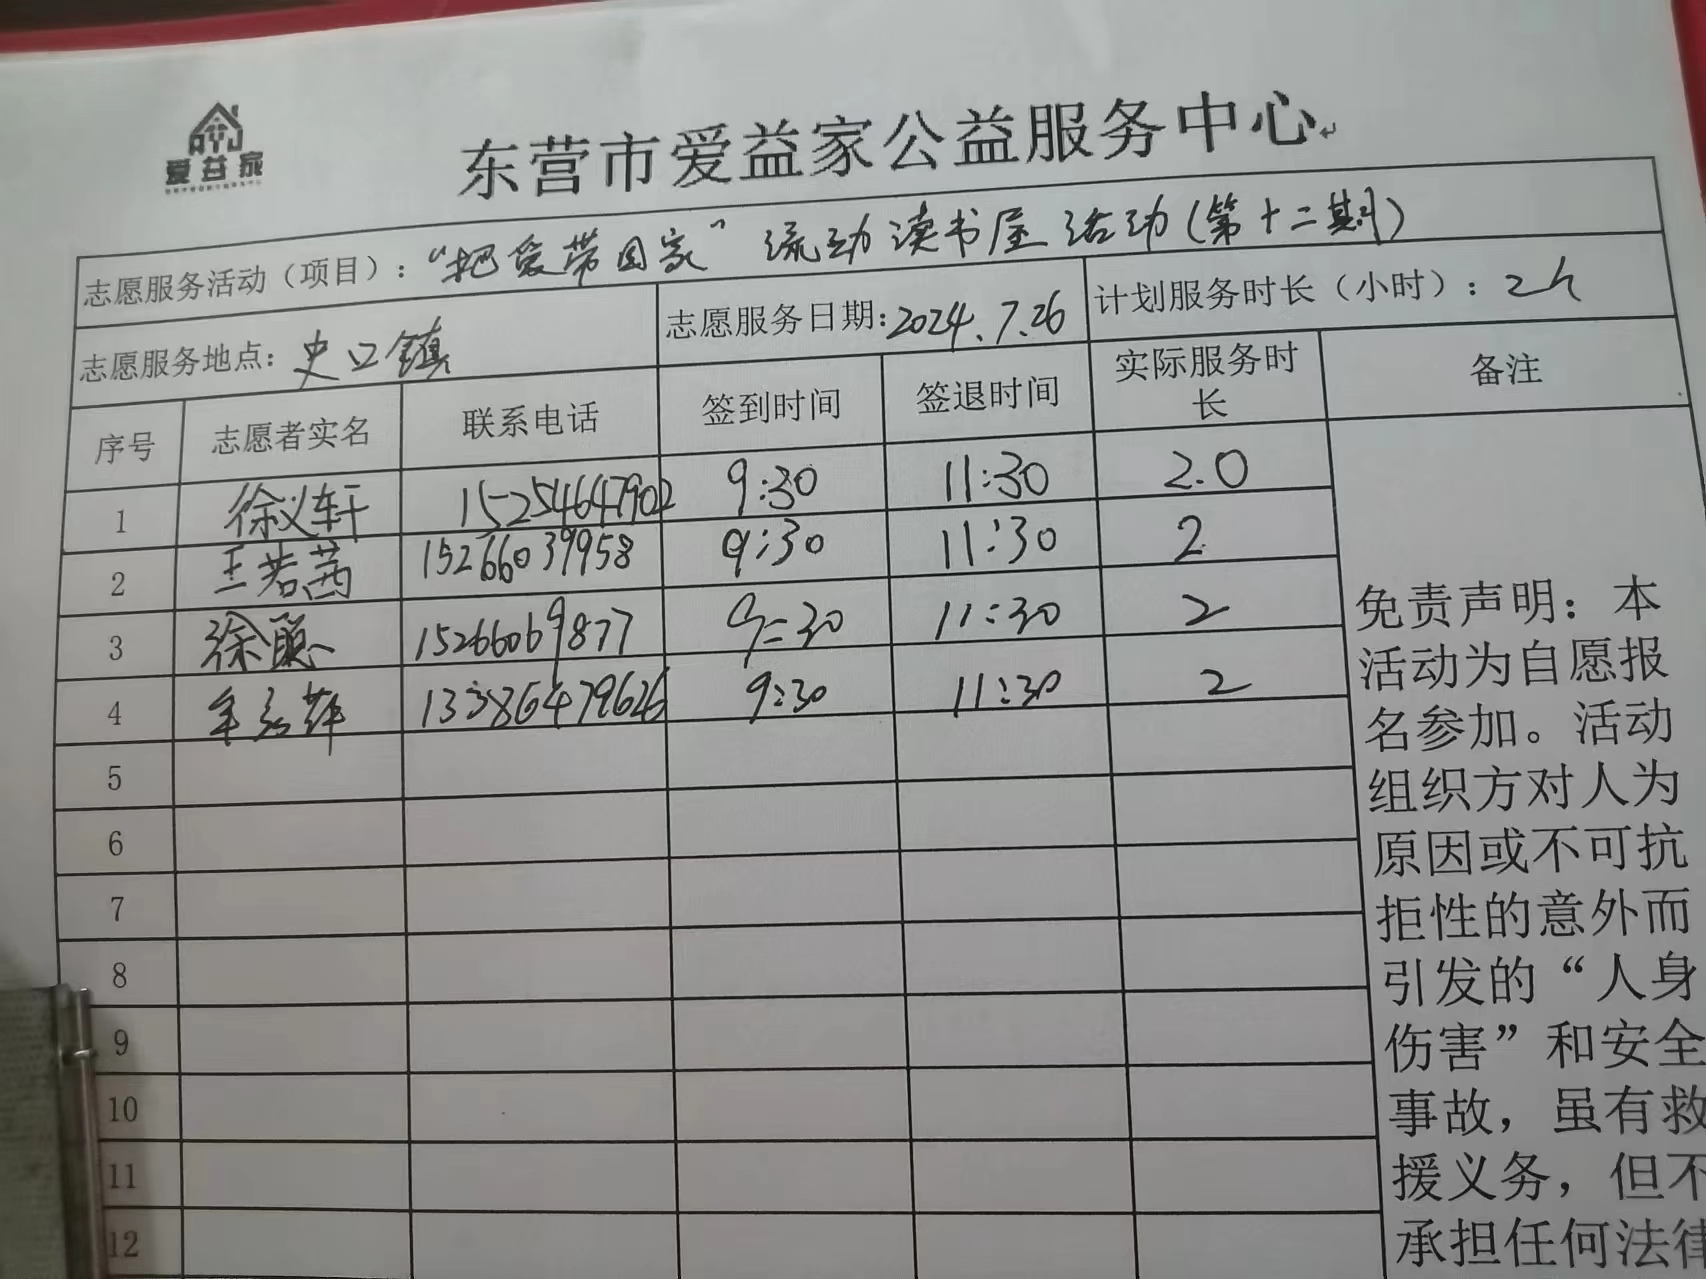 爱益家
东营市爱益家公益服务中心
志愿服务活动（项目）：“把爱带回家”流动读书屋活动(第十二期)
志愿服务地点：史口镇 志愿服务日期：2024.7.26 计划服务时长（小时）：2h
序号 志愿者实名 联系电话 签到时间 签退时间 实际服务时长 备注
1 徐义轩 15254647902 9:30 11:30 2.0
2 王若茜 15266039958 9:30 11:30 2
3 徐聪 15266069877 9:30 11:30 2
4 13386479626 9:30 11:30 2
5
6
7
8
9
10
11
12
免责声明：本
活动为自愿报
名参加。活动
组织方对人为
原因或不可抗
拒性的意外而
引发的“人身
伤害”和安全
事故，虽有救
援义务，但不
承担任何法律